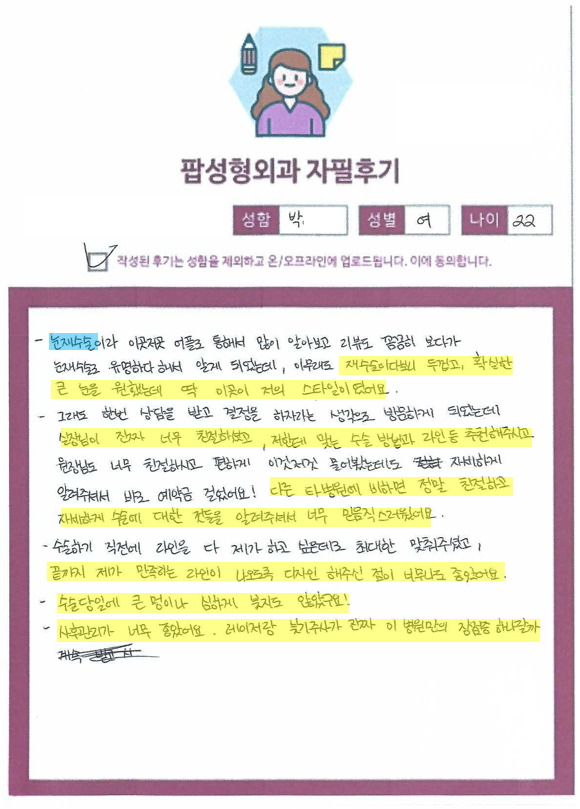 팝성형외과 자필후기
성함 박
성별 여
나이 22
작성된 후기는 성함을 제외하고 온/오프라인에 업로드됩니다. 이에 동의합니다.
- 눈재수술이라 이곳저곳 어플로 통해서 많이 알아보고 리뷰도 꼼꼼히 보다가
눈재수술로 유명하다 해서 알게 되었는데, 아무래도 재수술이다보니 두껍고, 확실한
큰 눈을 원했는데 딱 이곳이 저의 스타일이었어요.
- 그래도 한번 상담을 받고 결정을 하자라는 생각으로 방문하게 되었는데
실장님이 진짜 너무 친절하셨고, 저한테 맞는 수술 방법과 라인 등 추천해주시고
원장님도 너무 친절하시고 편하게 이것저것 물어봤는데도 자세하게
알려주셔서 바로 예약금 걸었어요! 다른 타병원에 비하면 정말 친절하고
자세하게 수술에 대한 것들을 알려주셔서 너무 믿음직스러웠어요.
- 수술하기 직전에 라인을 다 제가 하고 싶은데로 최대한 맞춰주셨고,
끝까지 제가 만족하는 라인이 나오도록 디자인 해주신 점이 너무나도 좋았어요.
- 수술당일에 큰 멍이나 심하게 붓지도 않았구요!
- 사후관리가 너무 좋았어요. 레이저랑 붓기주사가 진짜 이 병원만의 장점중 하나랄까